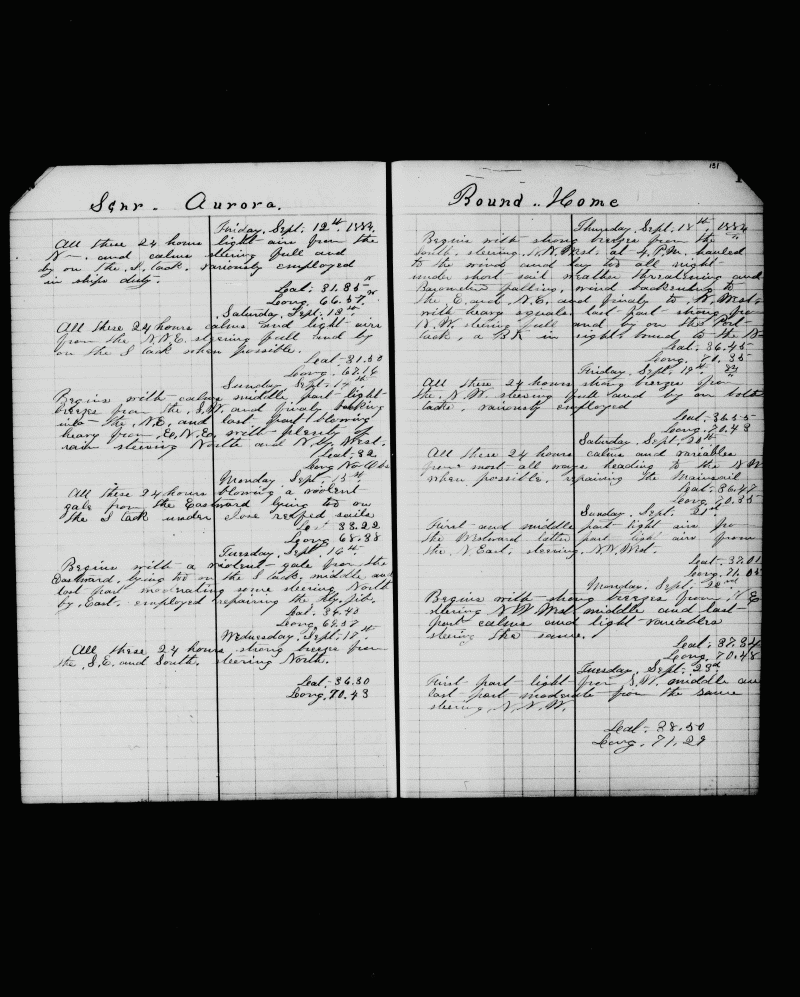 Schr. Aurora.
Friday, Sept. 12th, 1884.
All these 24 hours light airs from the
N— and calms steering full and
by on the S. tack. variously employed
in ships duty.
Lat: 31.35 N
Long 66.57 W
Saturday, Sept. 13th.
All these 24 hours calms and light airs
from the N.N.E. steering full and by
on the S tack when possible.
Lat 31.50
Long 67.16
Sunday Sept. 14th
Begins with calms middle part light
breezes from the S.W. and finaly backing
into the N.E. and last part blowing
heavy from E.N.E. with plenty of
rain steering North and N by West.
Lat: 32
Long No Obs
Monday Sept. 15th.
All these 24 hours blowing a violent
gale from the Eastward lying too on
the S tack under close reefed sails
Lat 33.22
Long 68.38
Tuesday, Sept. 16th.
Begins with a violent gale from the
Eastward, lying too on the S tack, middle and
last part moderating some steering North
by East. employed repairing the fly. jib.
Lat. 34.40
Long 69.57
Wednesday, Sept. 17th.
All these 24 hours strong breezes from
the S.E. and South. steering North.
Lat. 36.30
Long. 70.43
131
Bound.. Home
Thursday, Sept. 18th, 1884
Begins with strong breezes from the
South. steering N.N.West. at 4, P.M. hauled
to the wind and lay too all night
under short sail weather threatening and
Barometer falling, wind backening to
the E. and N.E. and finaly to N. West.
with heavy squals. last part strong from
N.W. steering full and by on the Port
tack, a Bk in sight bound to the
Lat: 36.45
Long, 70.35
Friday, Sept. 19th. 84
All these 24 hours strong breezes from
the N.W. steering full and by on both
tacks. variously employed
Lat: 36.55
Long. 70.43
Saturday. Sept. 20th
All these 24 hours calms and variables
from most all ways heading to the N.W
when possible. repairing the Mainsail
Lat: 36.47
Long 70.35
Sunday, Sept. 21st.
First and middle part light airs from
the Westward latter part light airs from
the N.East. steering N.N.West.
Lat: 37.01
Long, 71.05
Monday. Sept. 22nd
Begins with strong breezes from N E
steering N W West middle and last
part calms and light variables
steering the same.
Lat: 37.34
Long. 70.48
Tuesday, Sept. 23d.
First part light from S.W. middle and
last part moderate from the same
steering N.N.W.
Lat: 38.50
Long. 71.29